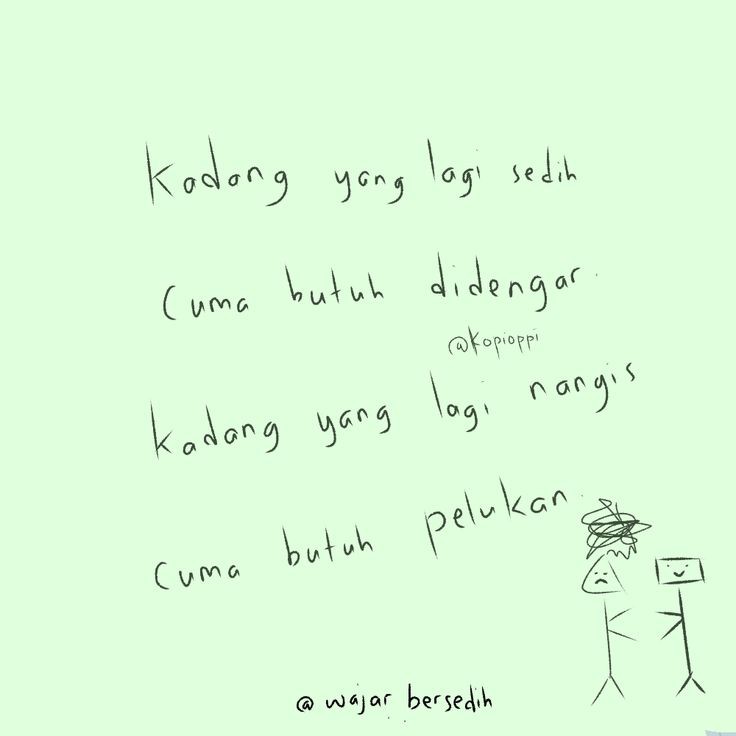 Kadang yang lagi sedih
Cuma butuh didengar.
@kopioppi
kadang yang lagi nangis
cuma butuh pelukan.
@ wajar bersedih